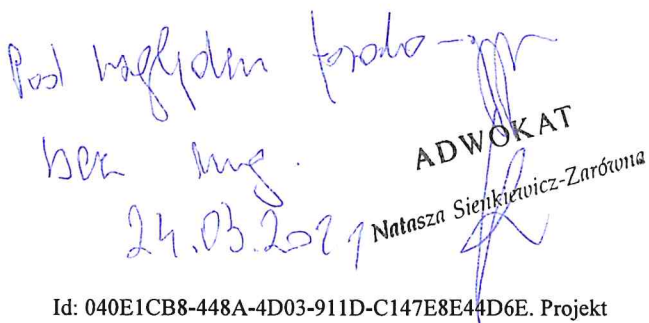 Pod względem formalno-pr
bez uwag.
24.03.2021
ADWOKAT
Natasza Sienkiewicz-Zarówna
Id: 040E1CB8-448A-4D03-911D-C147E8E44D6E. Projekt